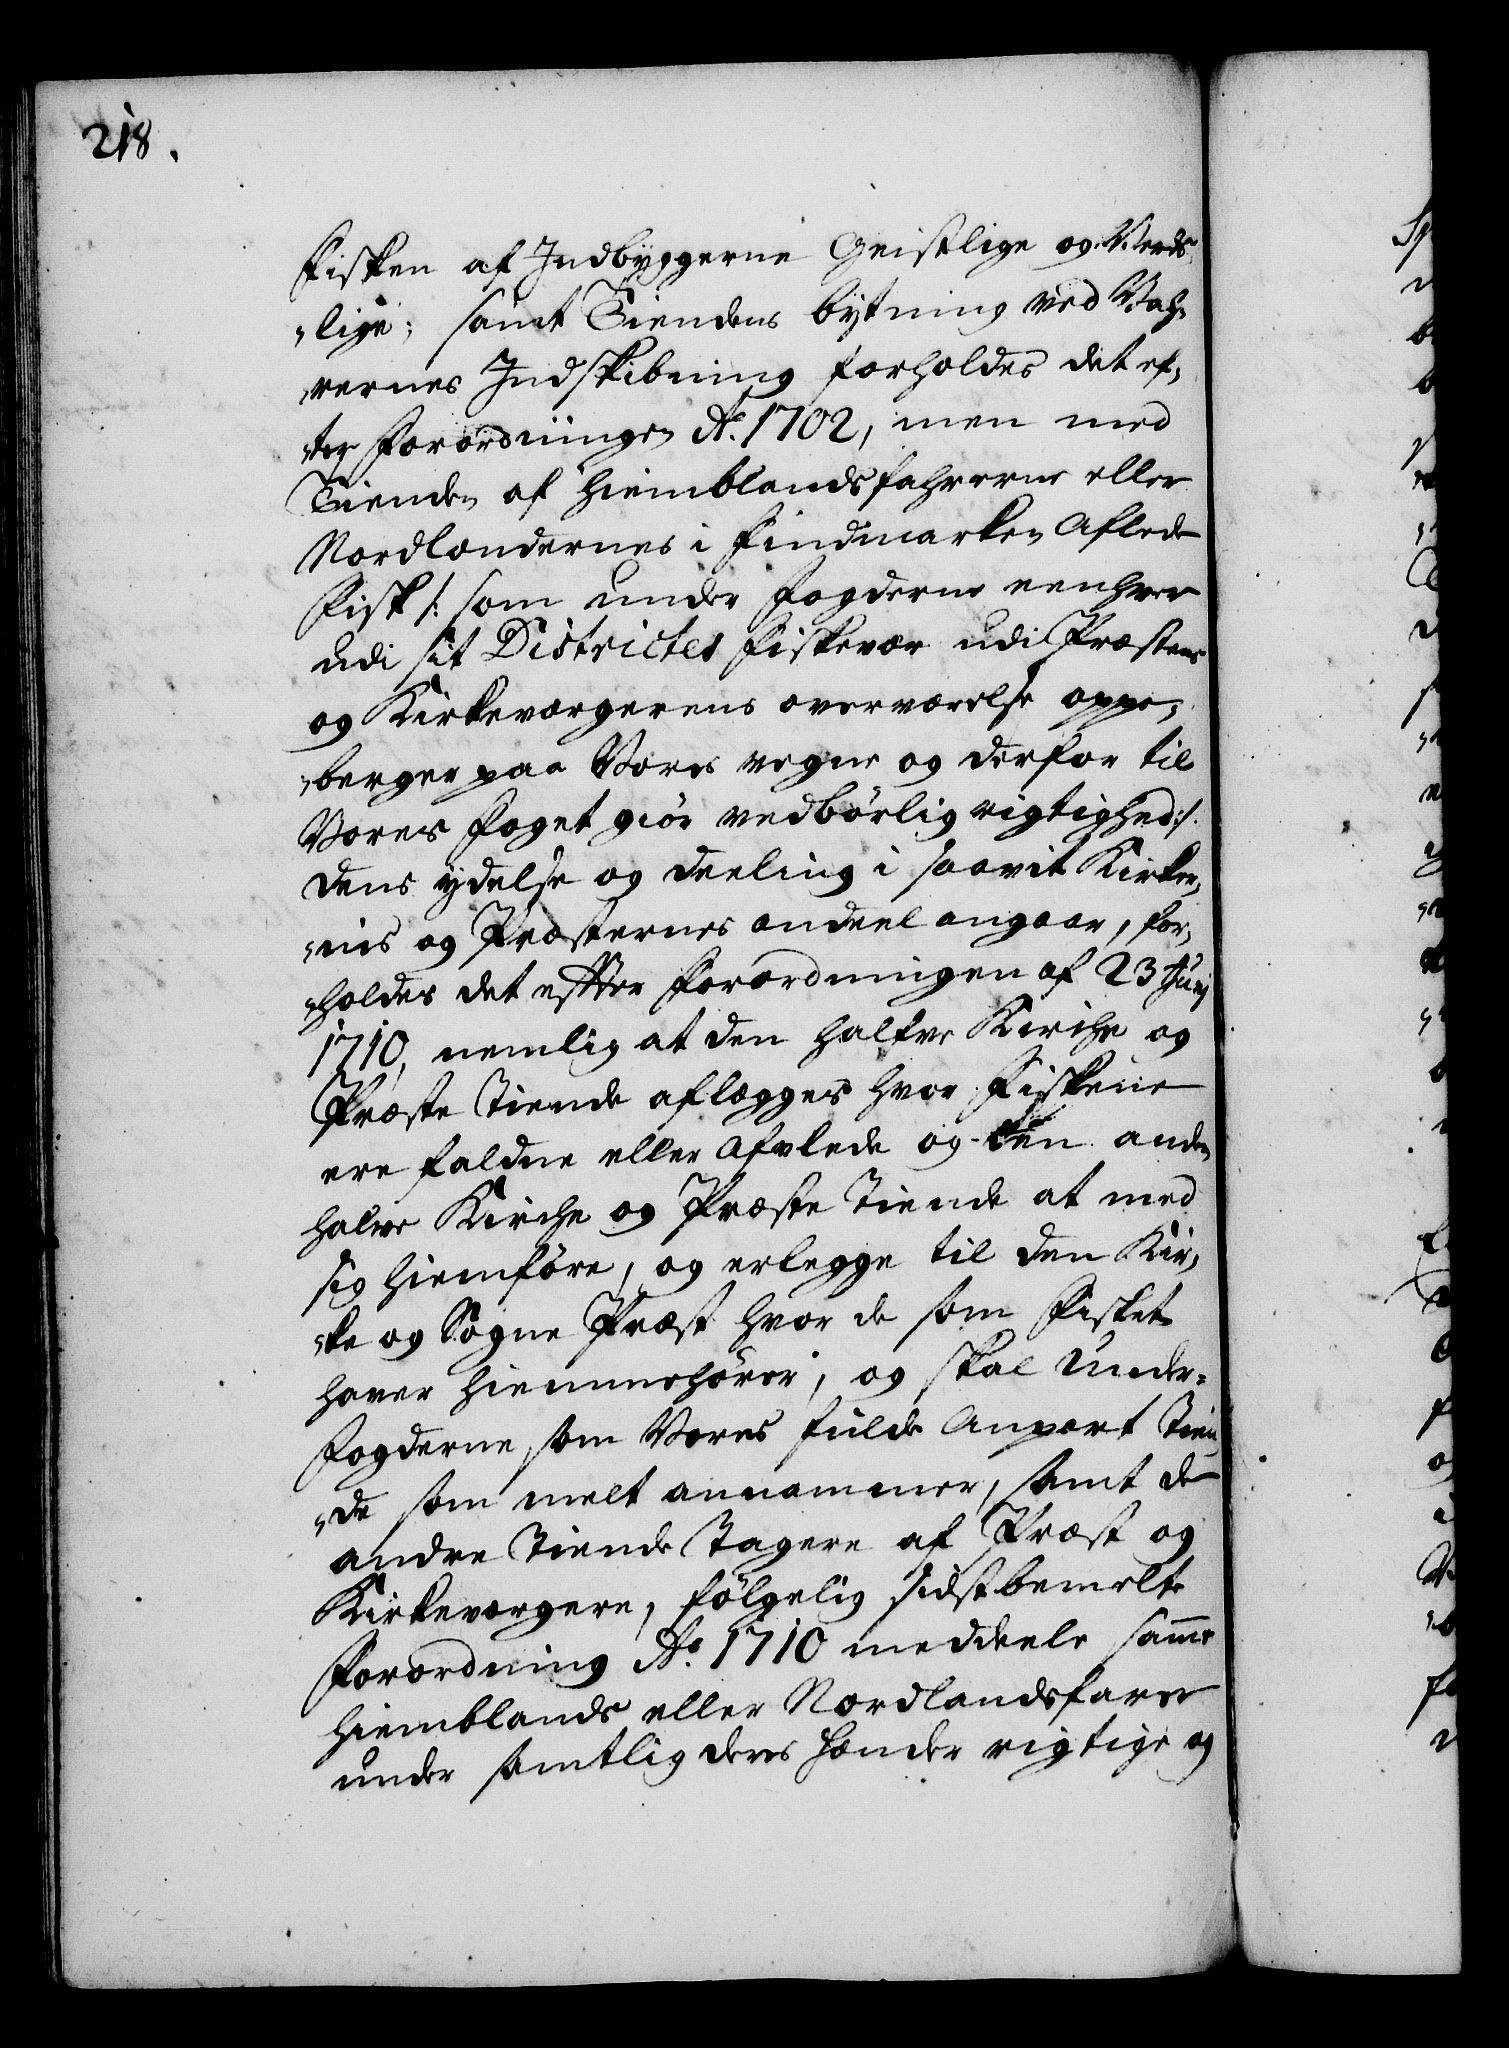 218.
Fisken af Indbyggerne Geistlige og Verds
„lige; samt Tiendens bytning ved Vah„
„rernes Indskibning forholdes det ef„
„ter Forordningen Ao. 1702, men med
Tienden af Hiemblandsfahrerne eller
Nordlændernes i Findmarken Aflede
Fisk /: som under Fogderne eenhver
udi sit Districtes Fiskevær udi Præstens
og Kirkeværgerens overværelse oppe„
„berger paa Vores vegne og derfor til
Vores Foget giør vedbørlig rigtighed :/
dens ydelse og deeling i saavit Kirker„
„nis og Præsternes andeel angaar, for„
„holdes det effter Forordningen af 23 Junij
1710, nemlig at den halfve Kirche og
Præste Tiende aflægges hvor Fiskene
ere faldne eller Afvlede og den anden
halve Kirche og Præste Tiende at med
sig hiemføre, og erlegge til den Kir„
„ke og Sogne Præst hvor de som Fisket
haver hiemmehører, og skal Under„
Fogderne, som Vores fulde Anpart Tien„
„de som melt annammer, samt de
andre Tiende Tagere af Præst og
Kirkeværgere, følgelig sidstbemelte
Forordning Ao. 1710 meddeele samme
Hiemblands eller Nordlandsfarer
under samtlig deres Hænder rigtige og